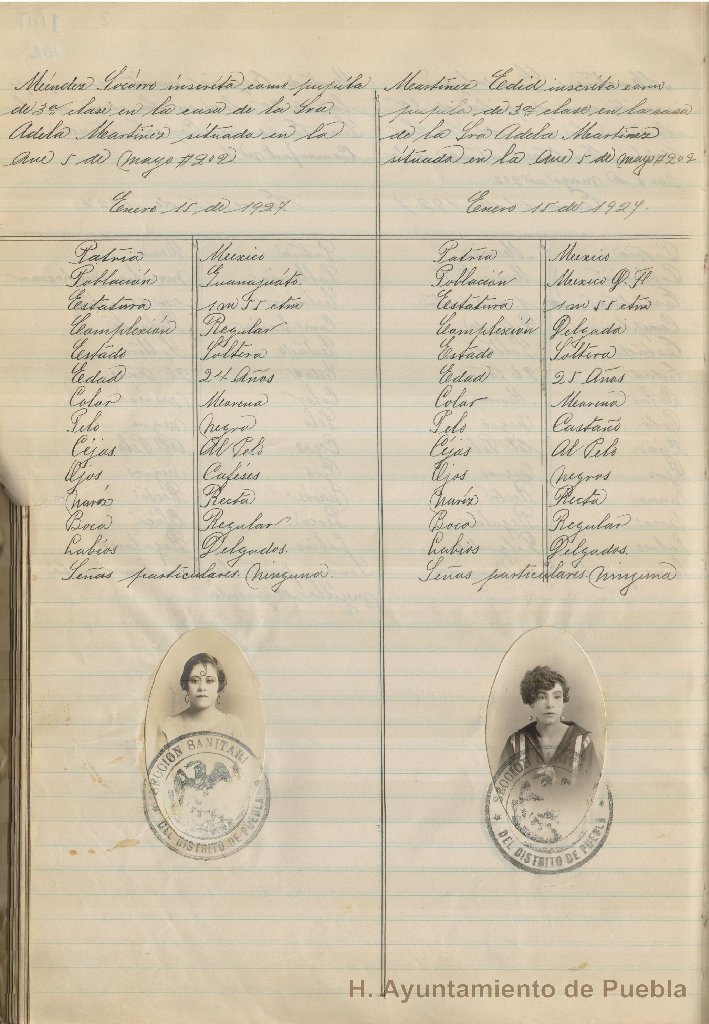 Méndez Socorro inscrita como pupila
de 3a clase en la casa de la Sra.
Adela Martínez situada en la
Ave 5 de Mayo #202
Enero 15 de 1927.
Patria Mexico
Población Guanajuato
Estatura 1m 55 ctm
Complexión Regular
Estado Soltera
Edad 24 Años
Color Morena
Pelo Negro
Cejas Al Pelo
Ojos Cafeses
Nariz Recta
Boca Regular
Labios Delgados.
Señas particulares Ninguna.
SECCIÓN SANITARI
DEL DISTRITO DE PUEBLA
Martínez Edid inscrita como
pupila de 3a clase en la casa
de la Sra Adela Martínez
situada en la Ave 5 de Mayo #202
Enero 15 de 1927.
Patria Mexico
Población Mexico D. F
Estatura 1m 55 ctm
Complexión Delgada
Estado Soltera
Edad 25 Años
Color Morena
Pelo Castaño
Cejas Al Pelo
Ojos Negros
Nariz Recta
Boca Regular
Labios Delgados.
Señas particulares Ninguna
SECCION
DEL DISTRITO DE PUEBLA
H. Ayuntamiento de Puebla